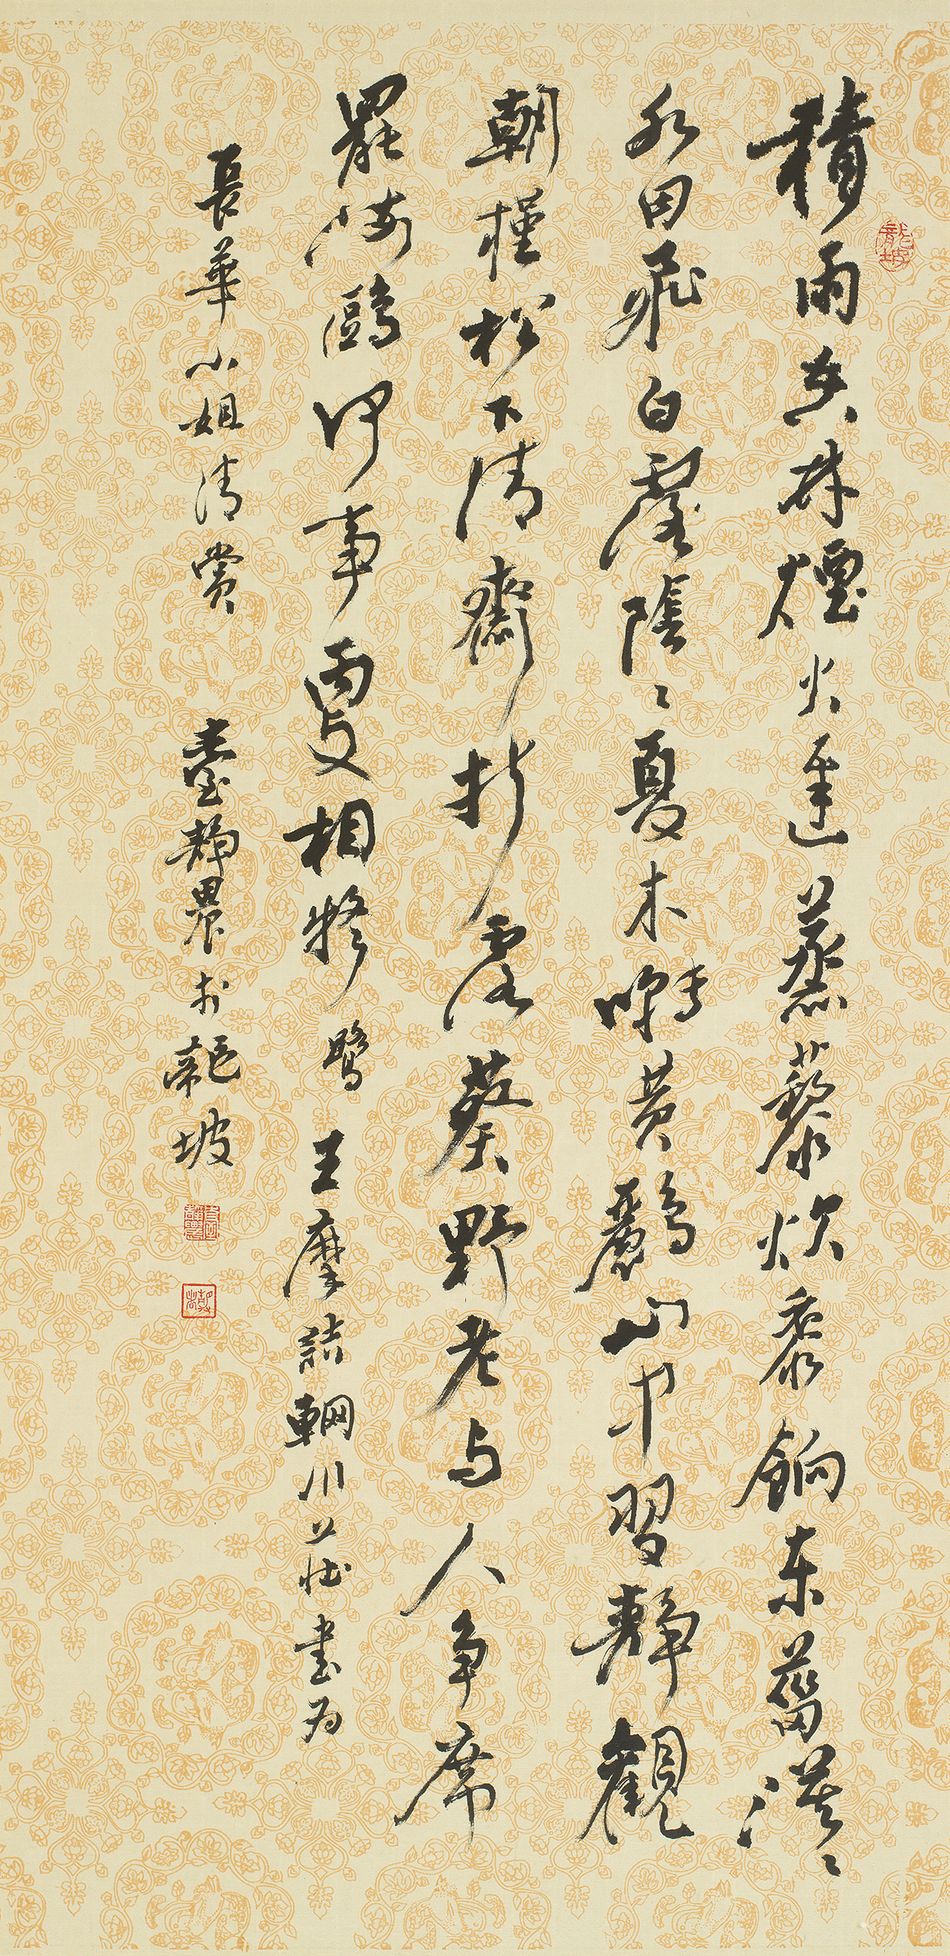 龍坡
積雨空林煙火遲蒸藜炊黍餉東菑漠〻
水田飛白露陰〻夏木囀黃鸝山中習靜觀
朝槿松下清齋折露葵野老与人爭席
罷海鷗何事更相疑 鷺 王摩詰輞川莊書為
長華小姐清賞 臺靜農於龍坡
臺靜農